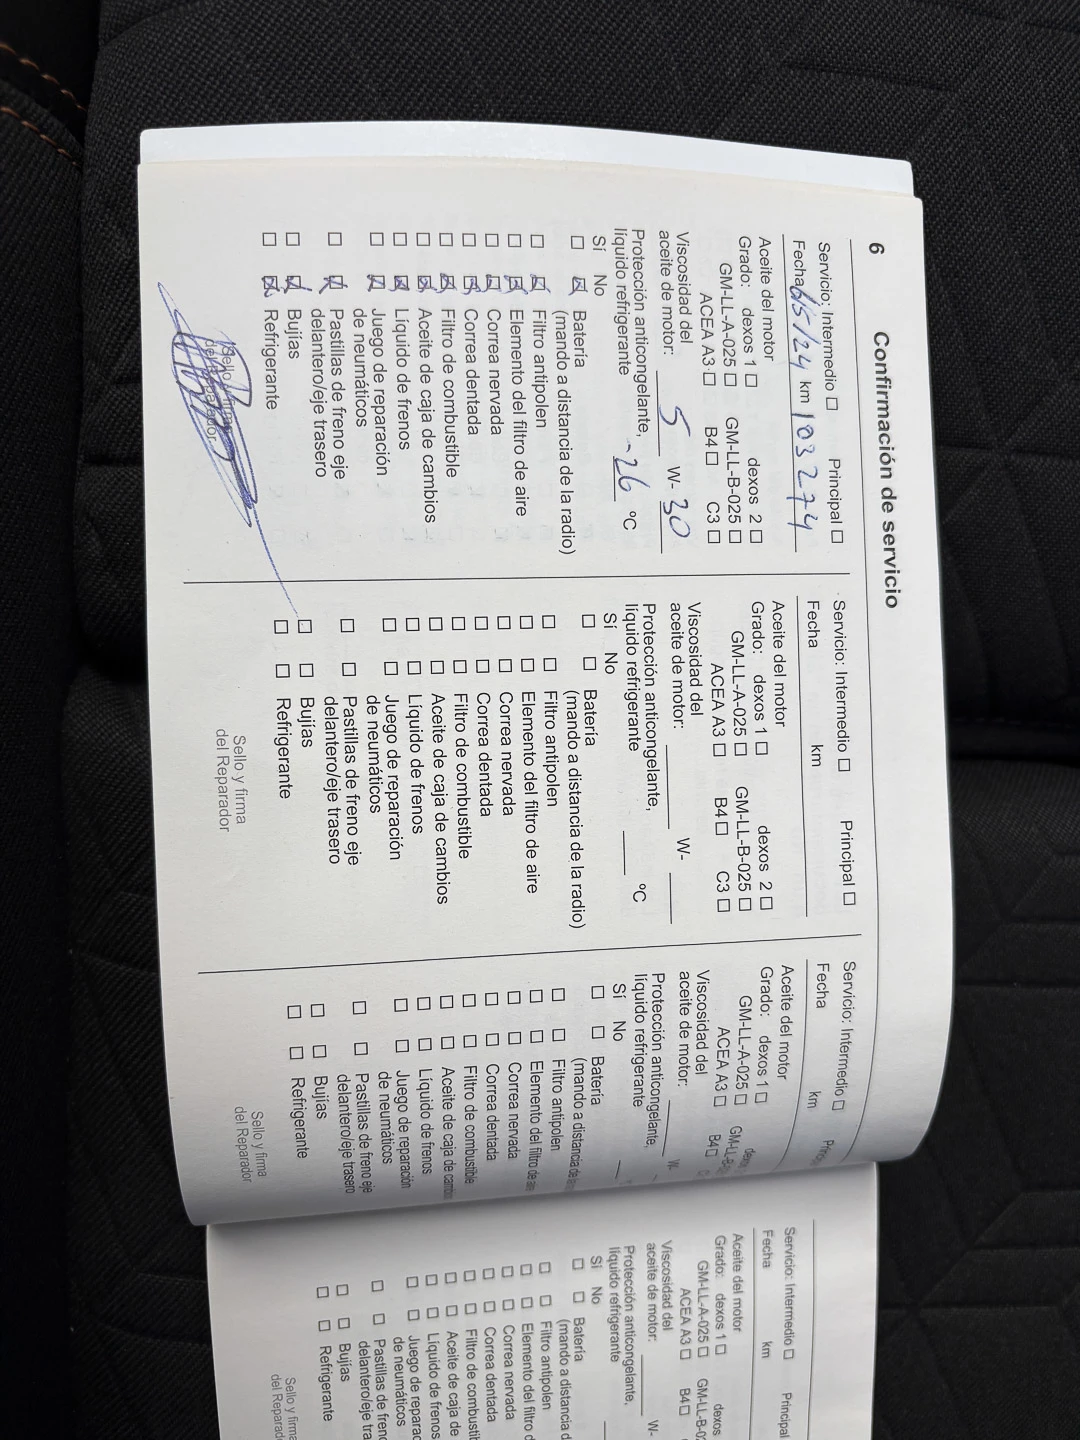 6
Confirmación de servicio
Servicio: Intermedio ☐ Principal ☐
Fecha 6/5/24 km 103274
Aceite del motor
Grado: dexos 1 ☐ dexos 2 ☐
GM-LL-A-025 ☐ GM-LL-B-025 ☐
ACEA A3 ☐ B4 ☐ C3 ☐
Viscosidad del
aceite de motor: 5 W- 30
Protección anticongelante,
líquido refrigerante -26 °C
Sí No
☐ ☒ Batería
(mando a distancia de la radio)
☐ ☒ Filtro antipolen
☐ ☒ Elemento del filtro de aire
☐ ☒ Correa nervada
☐ ☒ Correa dentada
☐ ☒ Filtro de combustible
☐ ☒ Aceite de caja de cambios
☐ ☒ Líquido de frenos
☐ ☒ Juego de reparación
de neumáticos
☐ ☒ Pastillas de freno eje
delantero/eje trasero
☐ ☒ Bujías
☐ ☒ Refrigerante
Sello y firma
del Reparador
Servicio: Intermedio ☐ Principal ☐
Fecha km
Aceite del motor
Grado: dexos 1 ☐ dexos 2 ☐
GM-LL-A-025 ☐ GM-LL-B-025 ☐
ACEA A3 ☐ B4 ☐ C3 ☐
Viscosidad del
aceite de motor: W-
Protección anticongelante,
líquido refrigerante °C
Sí No
☐ ☐ Batería
(mando a distancia de la radio)
☐ ☐ Filtro antipolen
☐ ☐ Elemento del filtro de aire
☐ ☐ Correa nervada
☐ ☐ Correa dentada
☐ ☐ Filtro de combustible
☐ ☐ Aceite de caja de cambios
☐ ☐ Líquido de frenos
☐ ☐ Juego de reparación
de neumáticos
☐ ☐ Pastillas de freno eje
delantero/eje trasero
☐ ☐ Bujías
☐ ☐ Refrigerante
Sello y firma
del Reparador
Servicio: Intermedio ☐
Fecha km
Aceite del motor
Grado: dexos 1 ☐ dexos
GM-LL-A-025 ☐ GM-LL-B
ACEA A3 ☐ B4 ☐
Viscosidad del
aceite de motor: W-
Protección anticongelante,
líquido refrigerante
Sí No
☐ ☐ Batería
(mando a distancia de la
☐ ☐ Filtro antipolen
☐ ☐ Elemento del filtro de aire
☐ ☐ Correa nervada
☐ ☐ Correa dentada
☐ ☐ Filtro de combustible
☐ ☐ Aceite de caja de cambios
☐ ☐ Líquido de frenos
☐ ☐ Juego de reparación
de neumáticos
☐ ☐ Pastillas de freno eje
delantero/eje trasero
☐ ☐ Bujías
☐ ☐ Refrigerante
Sello y firma
del Reparador
Servicio: Intermedio ☐ Principal
Fecha km
Aceite del motor
Grado: dexos 1 ☐ dexos
GM-LL-A-025 ☐ GM-LL-B-02
ACEA A3 ☐ B4 ☐
Viscosidad del
aceite de motor: W-
Protección anticongelante,
líquido refrigerante
Sí No
☐ ☐ Batería
(mando a distancia d
☐ ☐ Filtro antipolen
☐ ☐ Elemento del filtro d
☐ ☐ Correa nervada
☐ ☐ Correa dentada
☐ ☐ Filtro de combustib
☐ ☐ Aceite de caja de
☐ ☐ Líquido de frenos
☐ ☐ Juego de reparac
de neumáticos
☐ ☐ Pastillas de freno
delantero/eje tra
☐ ☐ Bujías
☐ ☐ Refrigerante
Sello y firma
del Reparad